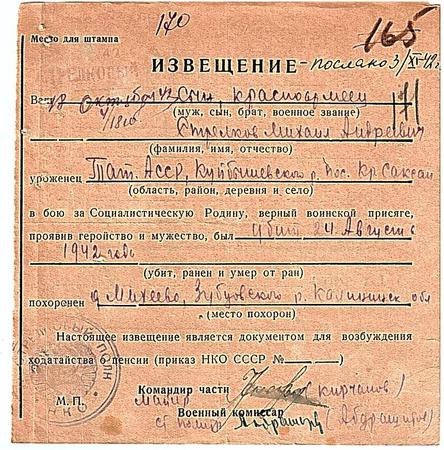 170
165
Место для штампа
СТРЕЛКОВЫЙ
ИЗВЕЩЕНИЕ - послано 3/XI-42 г.
Ваш Сын, красноармеец
18 октября 42
(муж, сын, брат, военное звание)
Стрелков Михаил Андреевич
(фамилия, имя, отчество)
уроженец Тат. АССР, Куйбышевского р. пос. Кр. Саксан
(область, район, деревня и село)
в бою за Социалистическую Родину, верный воинской присяге,
проявив геройство и мужество, был убит 24 Августа
1942 года
(убит, ранен и умер от ран)
похоронен д. Михеево, Зубцовского р. Калининск обл
(место похорон)
Настоящее извещение является документом для возбуждения
ходатайства о пенсии (приказ НКО СССР №
).
Командир части
майор (Кирчанов)
М. П.
Военный комиссар
ст политр (Абдрашитов)